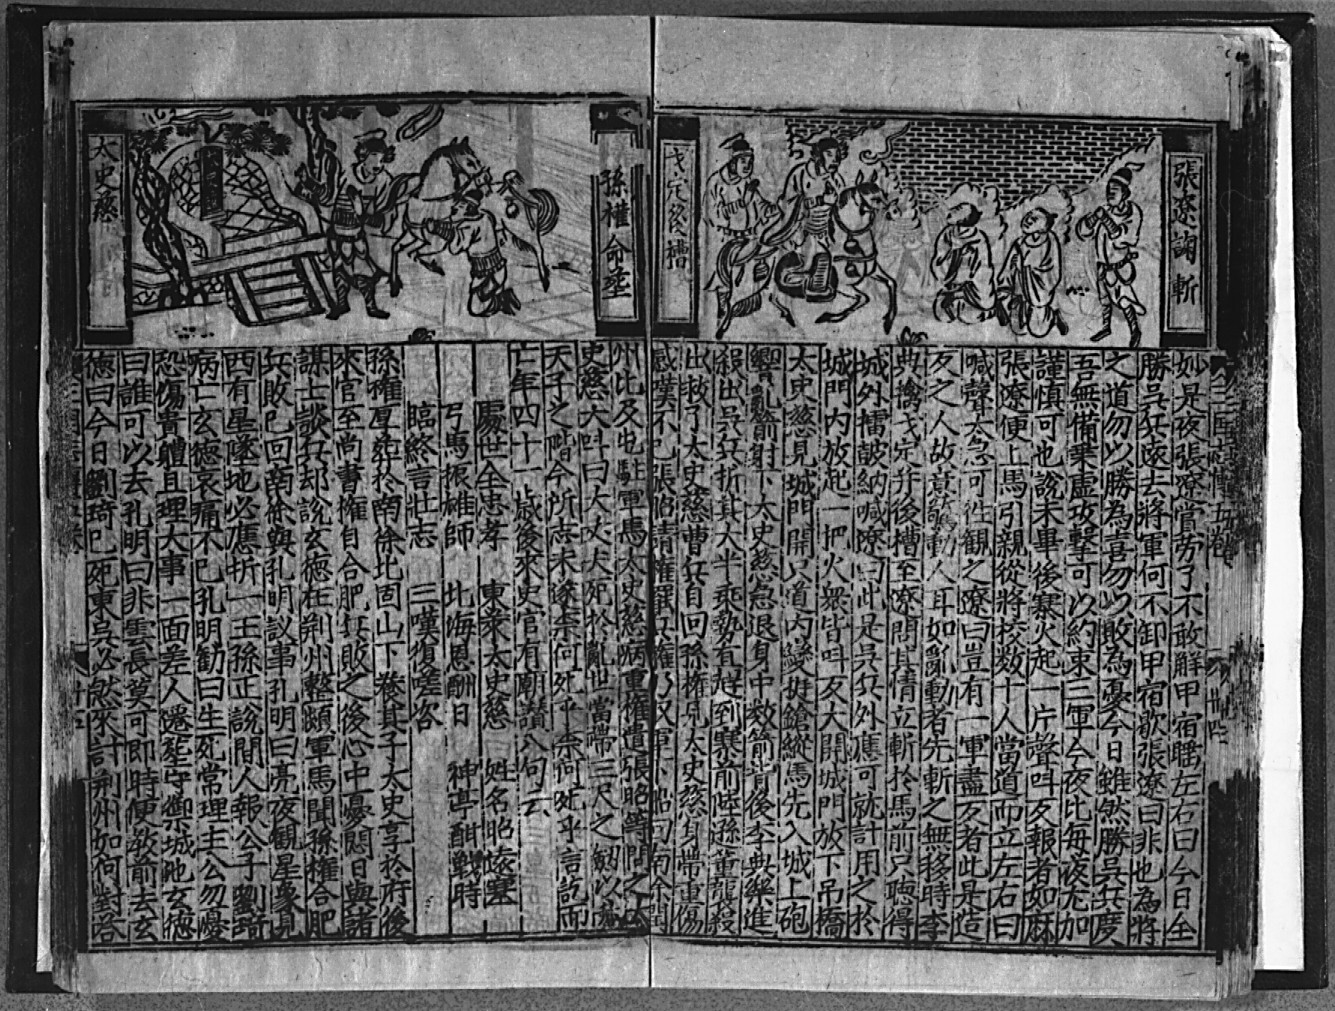 張遼詢斬
戈定後槽
妙是夜張遼賞劳了不敢解甲宿睡左右曰今日全
勝吳兵遠去將軍何不卸甲宿歇張遼曰非也為將
之道勿以勝為喜勿以敗為憂今日雖然勝吳兵度
吾無俻乗虛攻擊可以約束三軍今夜比每夜尤加
謹慎可也說未畢後寨火起一片聲叫反報者如麻
張遼便上馬引親從將校数十人當道而立左右曰
喊聲太急可徃観之遼曰豈有一軍盡反者此是造
反之人故意驚動人耳如亂動者先斬之無移時李
典擒戈定并後槽至遼問其情立斬扵馬前只聴得
城外擂皷納喊遼曰此是吳兵外應可就計用之扵
城門内放起一把火衆皆叫反大開城門放下吊橋
太史慈見城門開只道内变挺鎗縱馬先入城上砲
響亂箭射下太史慈急退身中数箭背後李典樂進
殺出吳兵折其大半乘勢直赶到寨前陸遜董襲殺
出救了太史慈曹兵自回孫權見太史慈身帶重傷
感嘆不已張昭請權罷兵權乃収軍下船回南徐潤
孫權命塟
太史慈
州比及屯駐軍馬太史慈病重權遣張昭等問之太
史慈大叫曰大丈夫死扵亂世當帶三尺之劔以為
天子之階今所志未遂奈何死乎奈何死乎言訖而
亡年四十一歳後來史官有廟讃八句云
處世全忠孝 東萊太史慈 姓名昭遠塞
弓馬振雄師 北海恩酬日 神亭酣戰時
臨終言壮志 三嘆復嗟咨
孫權厚塟扵南徐北固山下養其子太史享扵府後
來官至尚書權自合肥兵敗之後心中憂悶日與諸
謀士談兵却說玄德在荆州整頓軍馬聞孫權合肥
兵敗已回南徐與孔明議事孔明曰亮夜観星象見
西有星墜地必應折一王孫正說間人報公子劉琦
病亡玄德哀痛不已孔明勸曰生死常理主公勿憂
恐傷貴體且理大事一面差人遷塟守禦城池玄德
曰誰可以去孔明曰非雲長莫可即時便敎前去玄
德曰今日劉琦已死東吳必然來討荆州如何對答